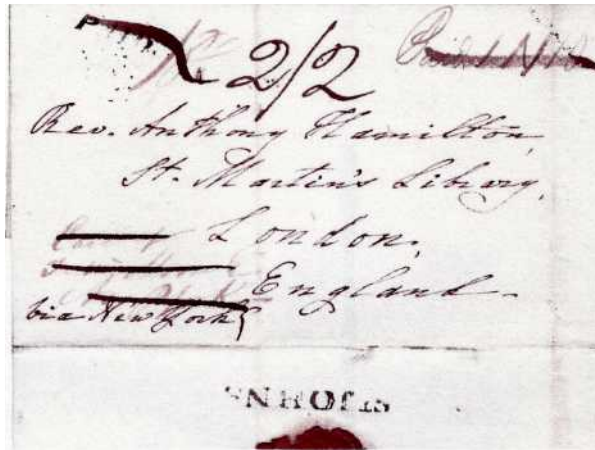 Paid
2/2
Rev. Anthony Hamilton,
St. Martin's Library,
London,
England.
via New York
ST JOHNS